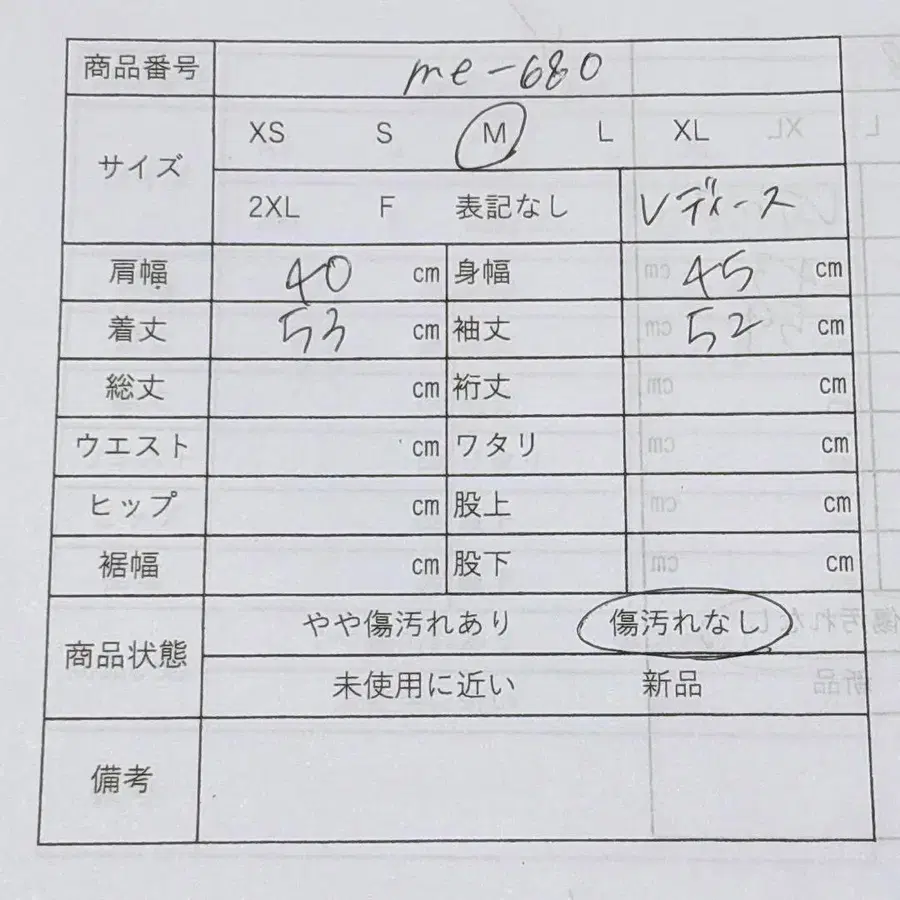 商品番号 me-680
サイズ XS S M L XL
2XL F 表記なし レディース
肩幅 40 cm 身幅 45 cm
着丈 53 cm 袖丈 52 cm
総丈 cm 裄丈 cm
ウエスト cm ワタリ cm
ヒップ cm 股上 cm
裾幅 cm 股下 cm
商品状態 やや傷汚れあり 傷汚れなし
未使用に近い 新品
備考